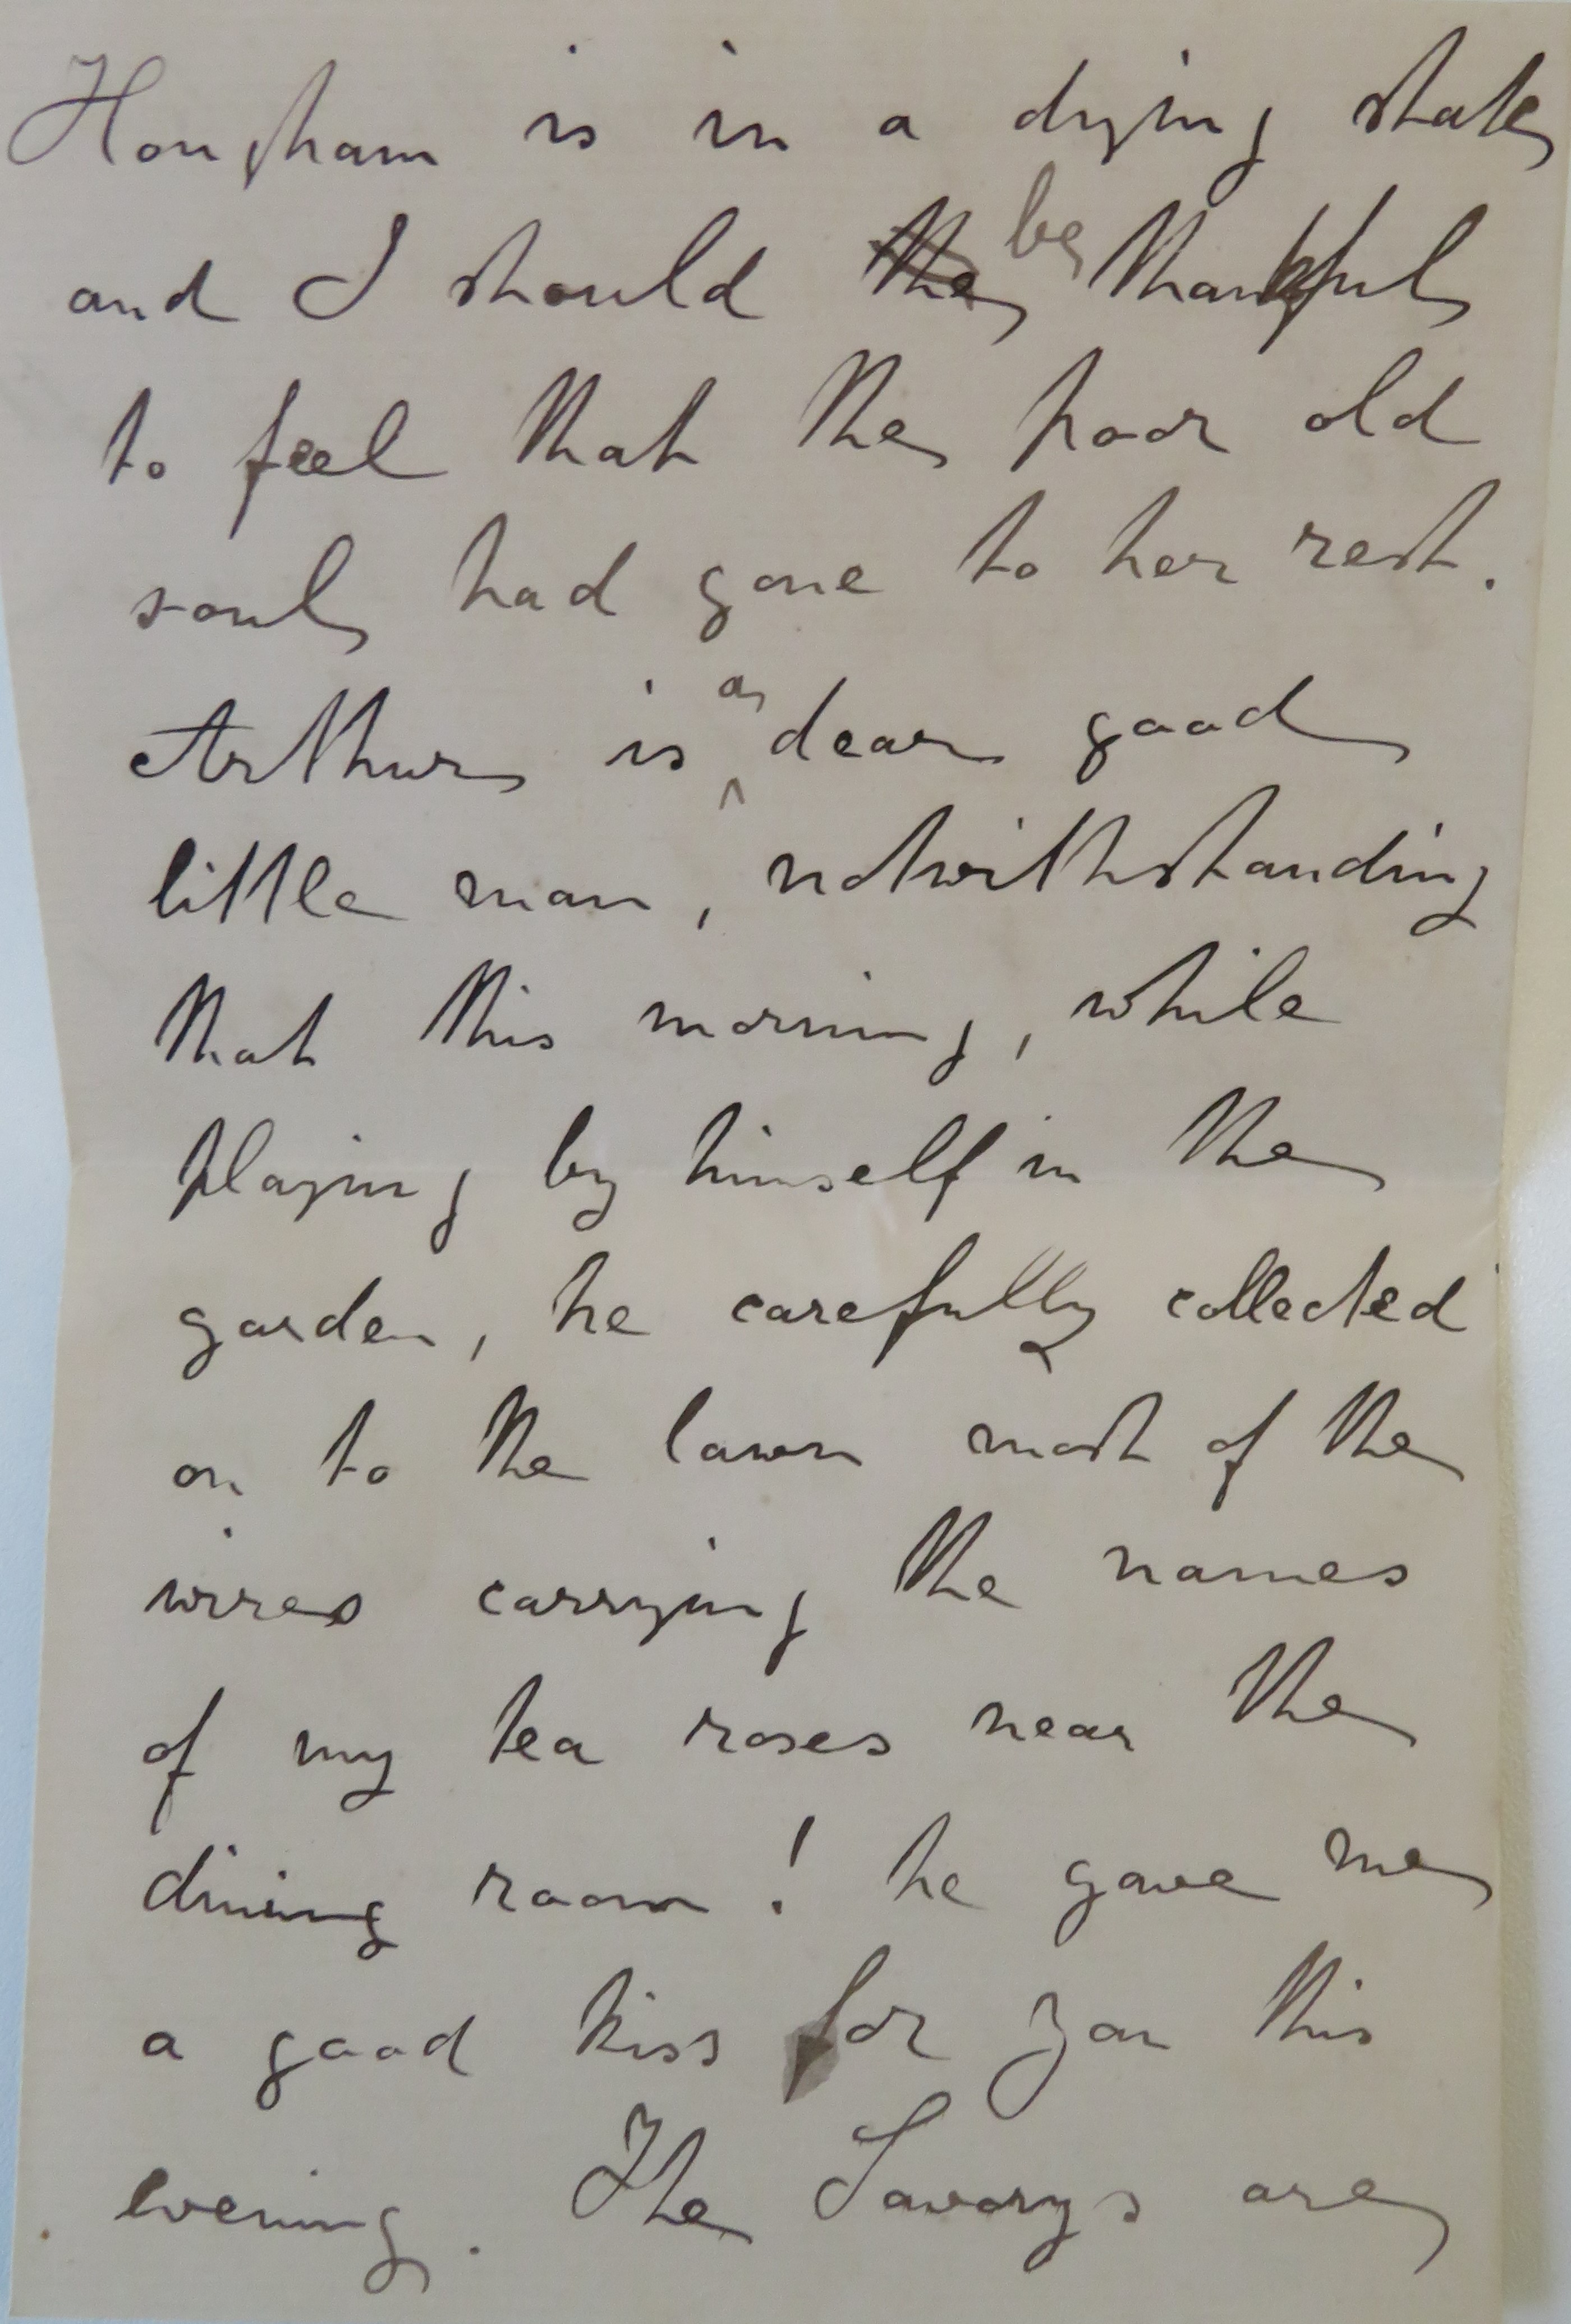 Hougham is in a dying state
and I should the be thankful
to feel that the poor old
soul had gone to her rest.
Arthur is a dear good
little man, notwithstanding
that this morning, while
playing by himself in the
garden, he carefully collected
on to the lawn most of the
wires carrying the names
of my tea roses near the
dining room! he gave me
a good kiss for you this
evening. The Savorys are